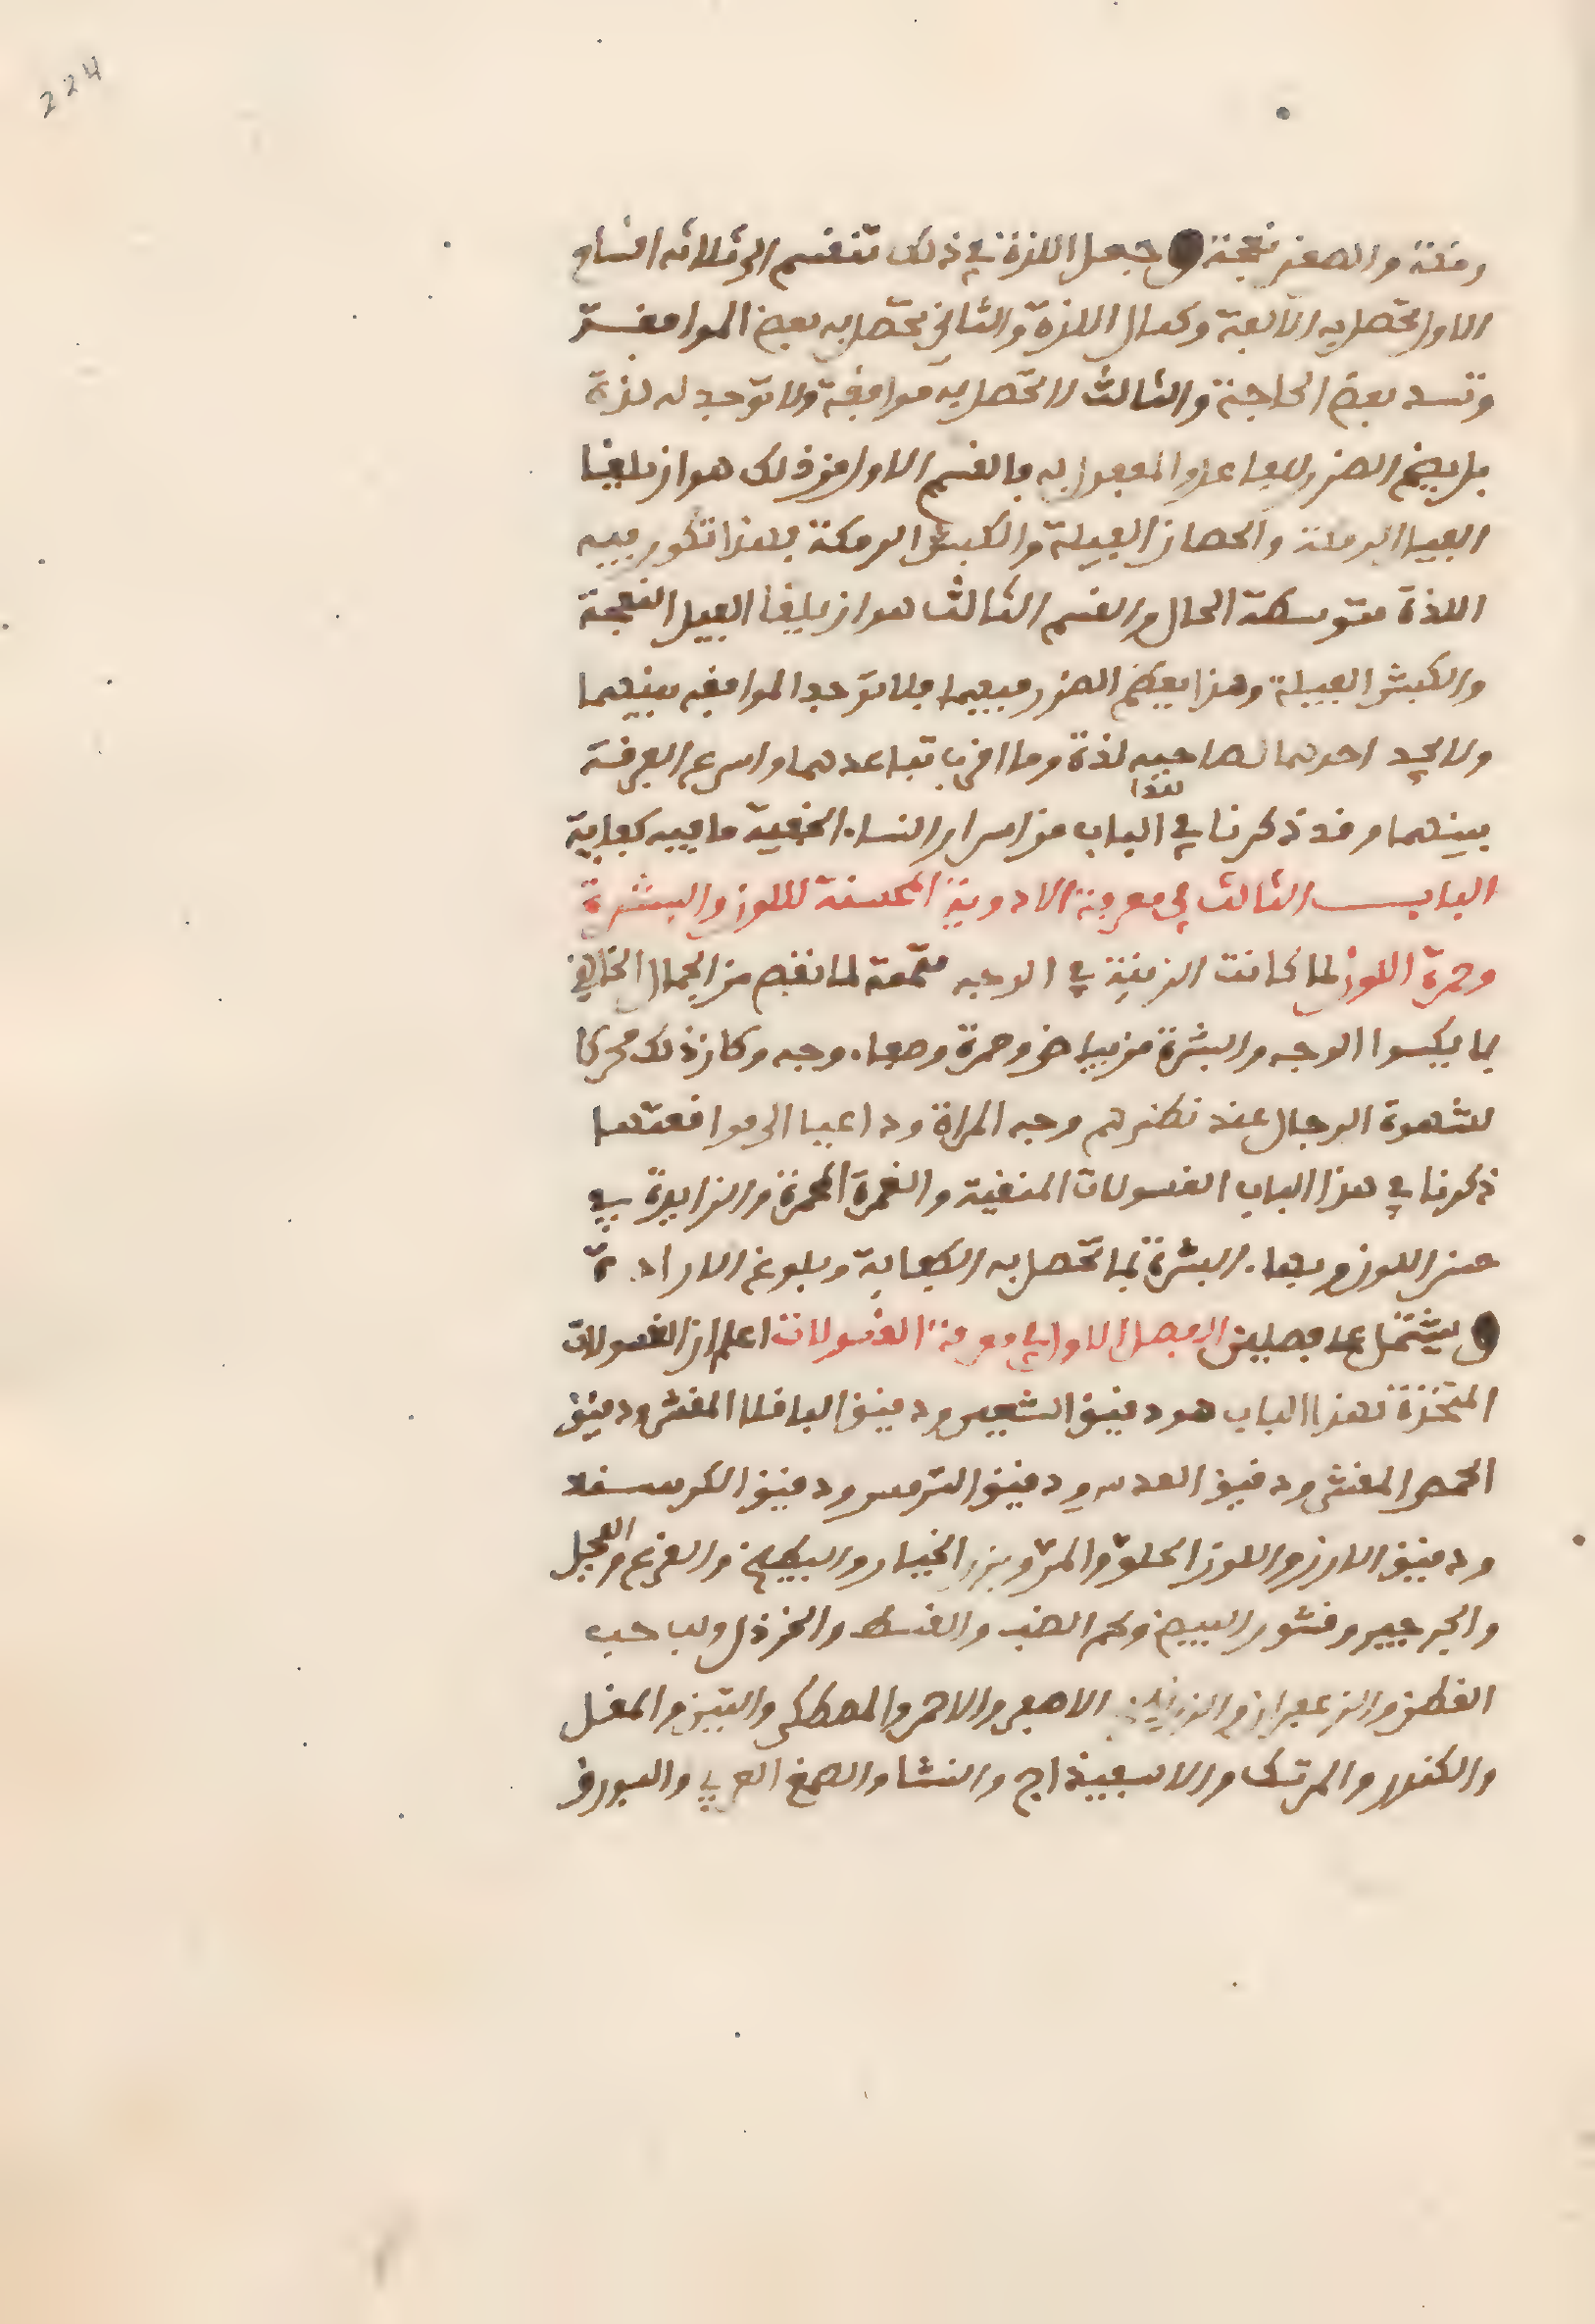 224
رمكة والصغير نعجة وجعل اللذة في ذلك تنقسم الى ثلاثه اقسام
الاول تحصل به الالفة وكمال اللذة والثاني تحصل به بعض الموافقة
وتسد بعض الحاجة والثالث لا تحصل به موافقة ولا توجد له لذة
بل يقع الضرر للفاعل والمفعول به فالقسم الاول من ذلك هو ان يلقا
الفيل الرمكة والحصان الفيلة والكبش الرمكة فهذا تكون فيه
اللذة متوسطة الحال والقسم الثالث هو ان يلقا الفيل النعجة
والكبش الفيلة وهذا يعظم الضرر فيهما فلا توجد الموافقه بينهما
ولا يجد احدهما لصاحبه لذة وما اقرب تباعدهما واسرع الفرقة
بينهما وقد ذكرنا في هذا الباب من اسرار النساء الخفية ما فيه كفاية
الباب الثالث في معرفة الادوية المحسنة للون والبشرة
وحمرة اللون لما كانت الزينة في الوجه متممة لما نقص من الجمال الخالص
بما يكسوا الوجه والبشرة من بياض وحمرة وصفاء وجه وكان ذلك محركا
لشهوة الرجال عند نظرهم وجه المراة وداعيا الى مواقعتها
ذكرنا في هذا الباب الغسولات المنقية والغمرة المحمرة والزايدة في
حسن اللون وبهاء البشرة بما تحصل به الكفاية وبلوغ الارادة
ويشتمل على فصلين الفصل الاول في معرفة الغسولات اعلم ان الغسولات
المتخذة لهذا الباب هو دقيق الشعير ودقيق الباقلا المقشر ودقيق
الحمص المقشر ودقيق العدس ودقيق الترمس ودقيق الكرسنة
ودقيق الارز واللوز الحلو والمر وبزر الخيار والبطيخ والقرع والفجل
والجرجير وقشور البيض ولحم الضب والقسط والخردل ولب حب
القطن والزعفران والزرنيخ الاصفر والاحمر والمصطكى والتين والمقل
والكندر والمرتك والاسفيذاج والنشا والصمغ العربي والبورق